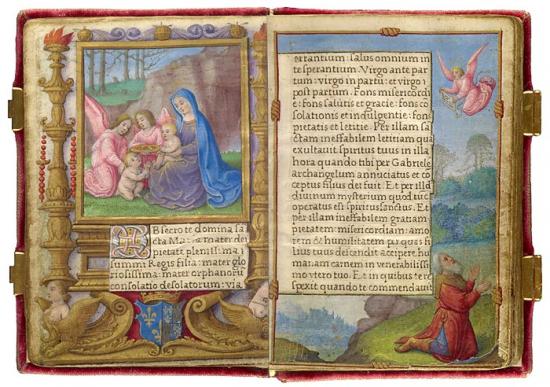 OBsecro te domina sa
cta Maria mater dei
pietate plenissima:
summi Regis filia: mater glo
riosissima mater orphanorū
consolatio desolatorum: via
errantium: salus omnium in
te sperantium. Virgo ante par
tum: virgo in partu: et virgo
post partum. Fons misericordi
ę: fons salutis et gracię: fons co
solationis et indulgentię: fons
pietatis et letitię. Per illam sā
ctam ineffabilem letitiam qua
exultauit spiritus tuus in illa
hora quando tibi per Gabriele
archangelum annuciatus et co
ceptus filius dei fuit. Et per id
diuinum mysterium quod tūc
operatus est spiritus sanctus. Et
per illam ineffabilem gratiam
pietatem: misericordiam: am
rem & humilitatem: per quas fi
lius tuus descendit accipere hu
mānam carnem in venerabilissi
mo vtero tuo. Et in quibus te re
spexit quando te commendauit